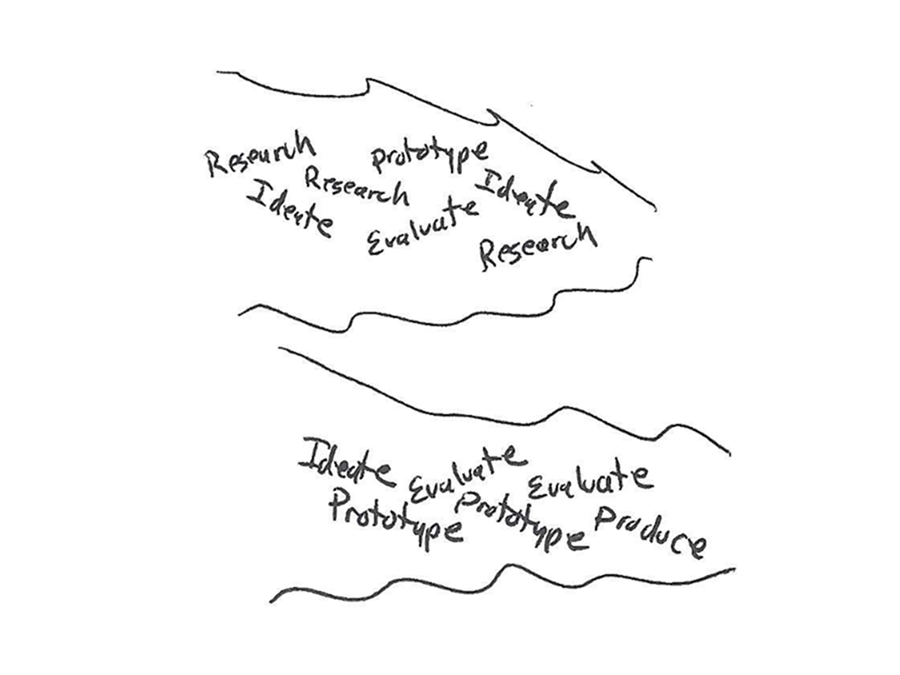 Research Prototype
Ideate Research Ideate
Evaluate Research
Ideate Evaluate Evaluate
Prototype Prototype Produce